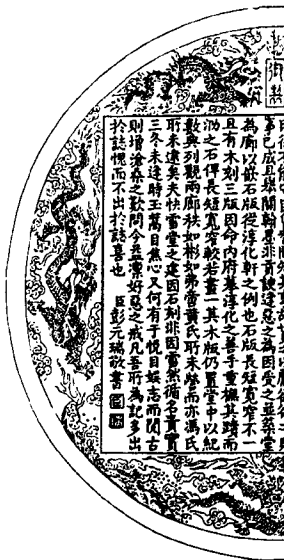 御製
事已成且
翰墨非貢諛逢惡之為因受之並築堂
為廊以嵌石版從淳化軒之例也石版長短寬窄不一
且有木刻三版因命內府摹淳化之善手重橅其蹟而
泐之石俾長短寬窄較若畫一其木版仍置堂中以紀
數典列觀兩廊秩如彬如弗啻黃氏所未而亦馮氏
所未逮矣夫快雪堂之建因石刻非因雪然循名責實
三冬未逢時玉萬目焦心又何有于悅目娛志而閱古
則增滄桑之歎問今益凜好惡之戒凡吾所為記多出
於誌愧而不出於誌喜也 臣彭元瑞敬書